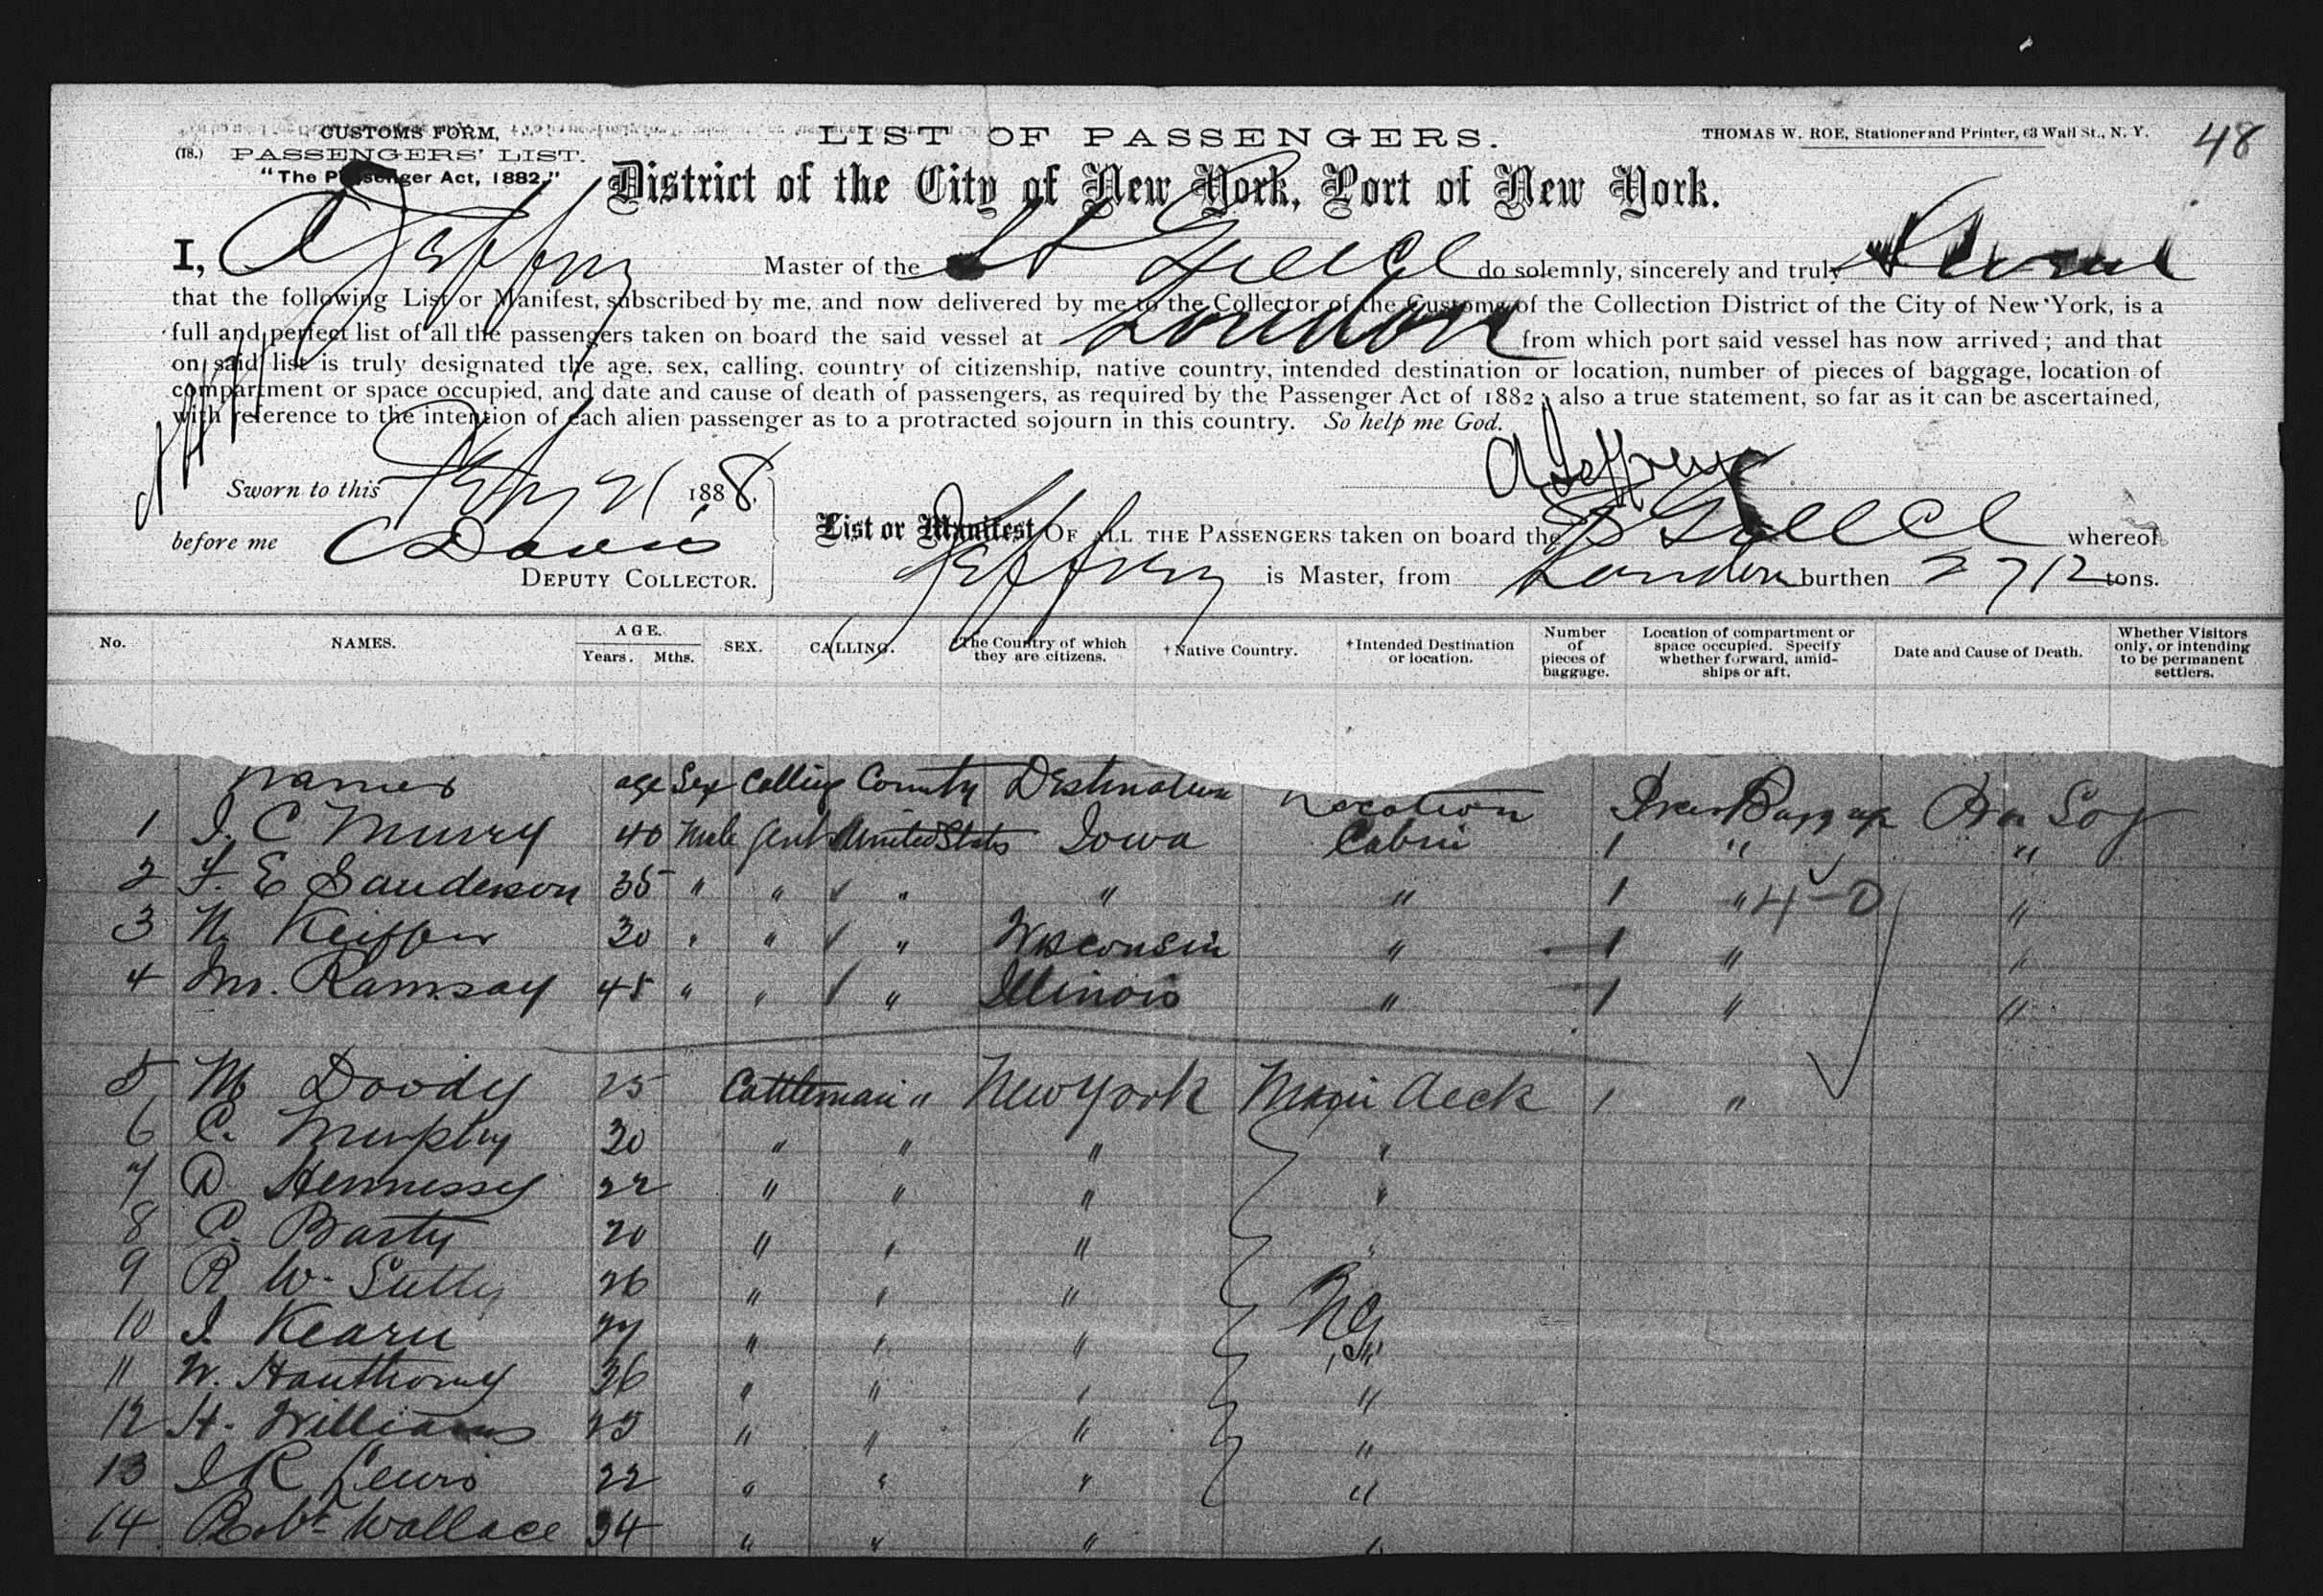 48
CUSTOMS FORM,
(18.) PASSENGERS' LIST.
"The Passenger Act, 1882."
LIST OF PASSENGERS.
THOMAS W. ROE, Stationer and Printer, 63 Wall St., N. Y.
District of the City of New York, Port of New York.
I, A Jeffrey Master of the SS Greece do solemnly, sincerely and truly
that the following List or Manifest, subscribed by me, and now delivered by me to the Collector of the Customs of the Collection District of the City of New York, is a
full and perfect list of all the passengers taken on board the said vessel at London from which port said vessel has now arrived; and that
on said list is truly designated the age, sex, calling, country of citizenship, native country, intended destination or location, number of pieces of baggage, location of
compartment or space occupied, and date and cause of death of passengers, as required by the Passenger Act of 1882; also a true statement, so far as it can be ascertained,
with reference to the intention of each alien passenger as to a protracted sojourn in this country. So help me God.
A Jeffrey
Sworn to this Feby 21 1888,
before me C Davis
DEPUTY COLLECTOR.
List or Manifest OF ALL THE PASSENGERS taken on board the SS Greece whereof
Jeffrey is Master, from London burthen 2712 tons.
No. NAMES. AGE. Years. Mths. SEX. CALLING. †The Country of which they are citizens. †Native Country. †Intended Destination or location. Number of pieces of baggage. Location of compartment or space occupied. Specify whether forward, amidships or aft. Date and Cause of Death. Whether Visitors only, or intending to be permanent settlers.
Names age Sex Calling Country Destination Location Baggage
1 J. C Murry 40 Male Gent United States Iowa Cabin 1 " "
2 F. E Sanderson 35 " " " " " 1 " 4-0 "
3 N. Keiffer 30 " " " Wisconsin " 1 " "
4 M. Ramsay 45 " " " Illinois " 1 " "
5 M Doody 25 Cattleman " New York deck 1 "
6 C. Murphy 30 " " " "
7 D. Hennessy 22 " " " "
8 C. Barty 20 " " " "
9 R W. Sutty 26 " " "
10 J. Kearn 27 " " " "
11 W. Hauthorny 36 " " " "
12 H. Williams 25 " " " "
13 J R Lewis 22 " " " "
14 Robt Wallace 34 " " " "